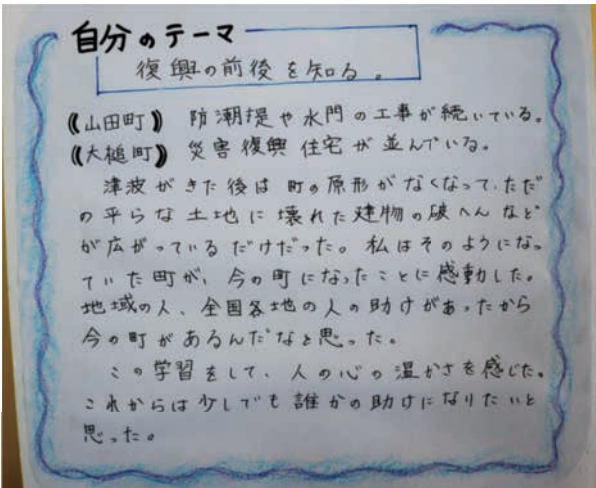 自分のテーマ
復興の前後を知る。
《山田町》 防潮提や水門の工事が続いている。
《大槌町》 災害復興住宅が並んでいる。
津波がきた後は町の原形がなくなって、ただ
の平らな土地に壊れた建物の破へんなど
が広がっているだけだった。私はそのようにな
っていた町が、今の町になったことに感動した。
地域の人、全国各地の人の助けがあったから
今の町があるんだなと思った。
この学習をして、人の心の温かさを感じた。
これからは少しでも誰かの助けになりたいと
思った。